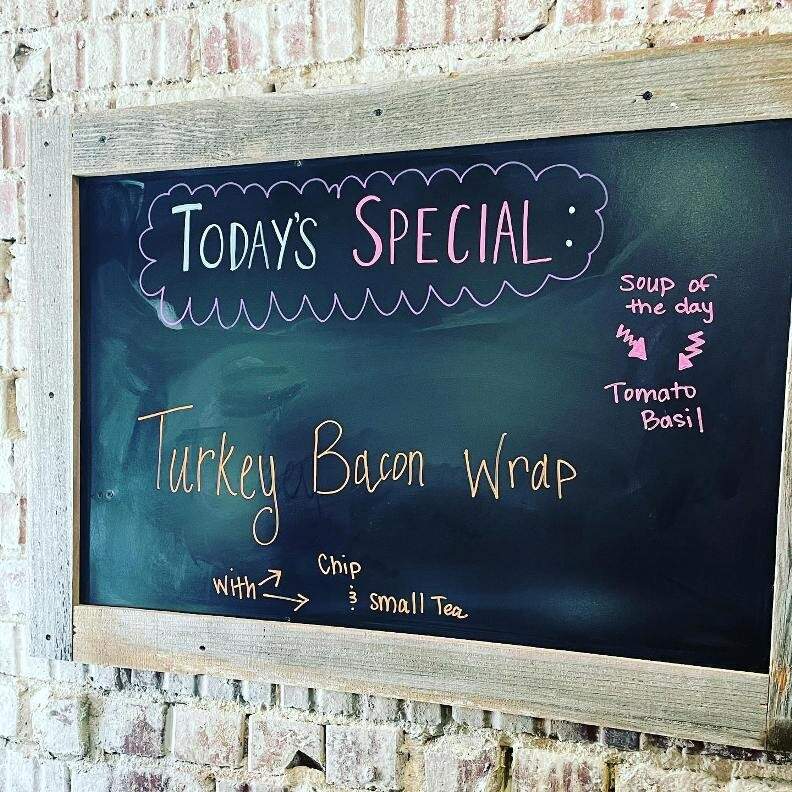 TODAY'S SPECIAL:
Soup of
the day
Tomato
Basil
Turkey Bacon Wrap
with
Chip
& small Tea